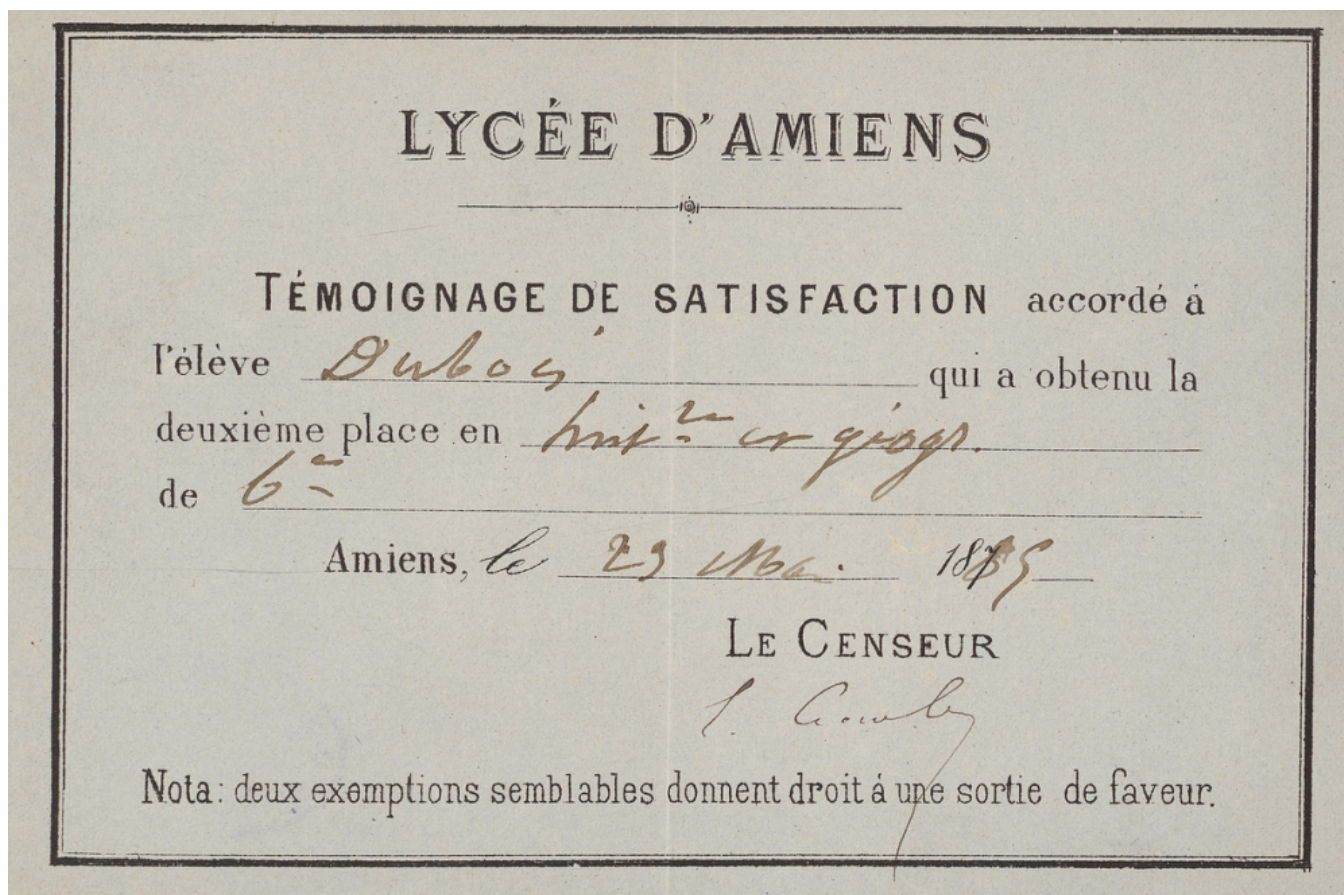 LYCÉE D'AMIENS
TÉMOIGNAGE DE SATISFACTION accordé à
l'élève Dubois qui a obtenu la
deuxième place en hist re et géogr.
de 6e
Amiens, le 29 Mai 1885
LE CENSEUR
Nota : deux exemptions semblables donnent droit à une sortie de faveur.